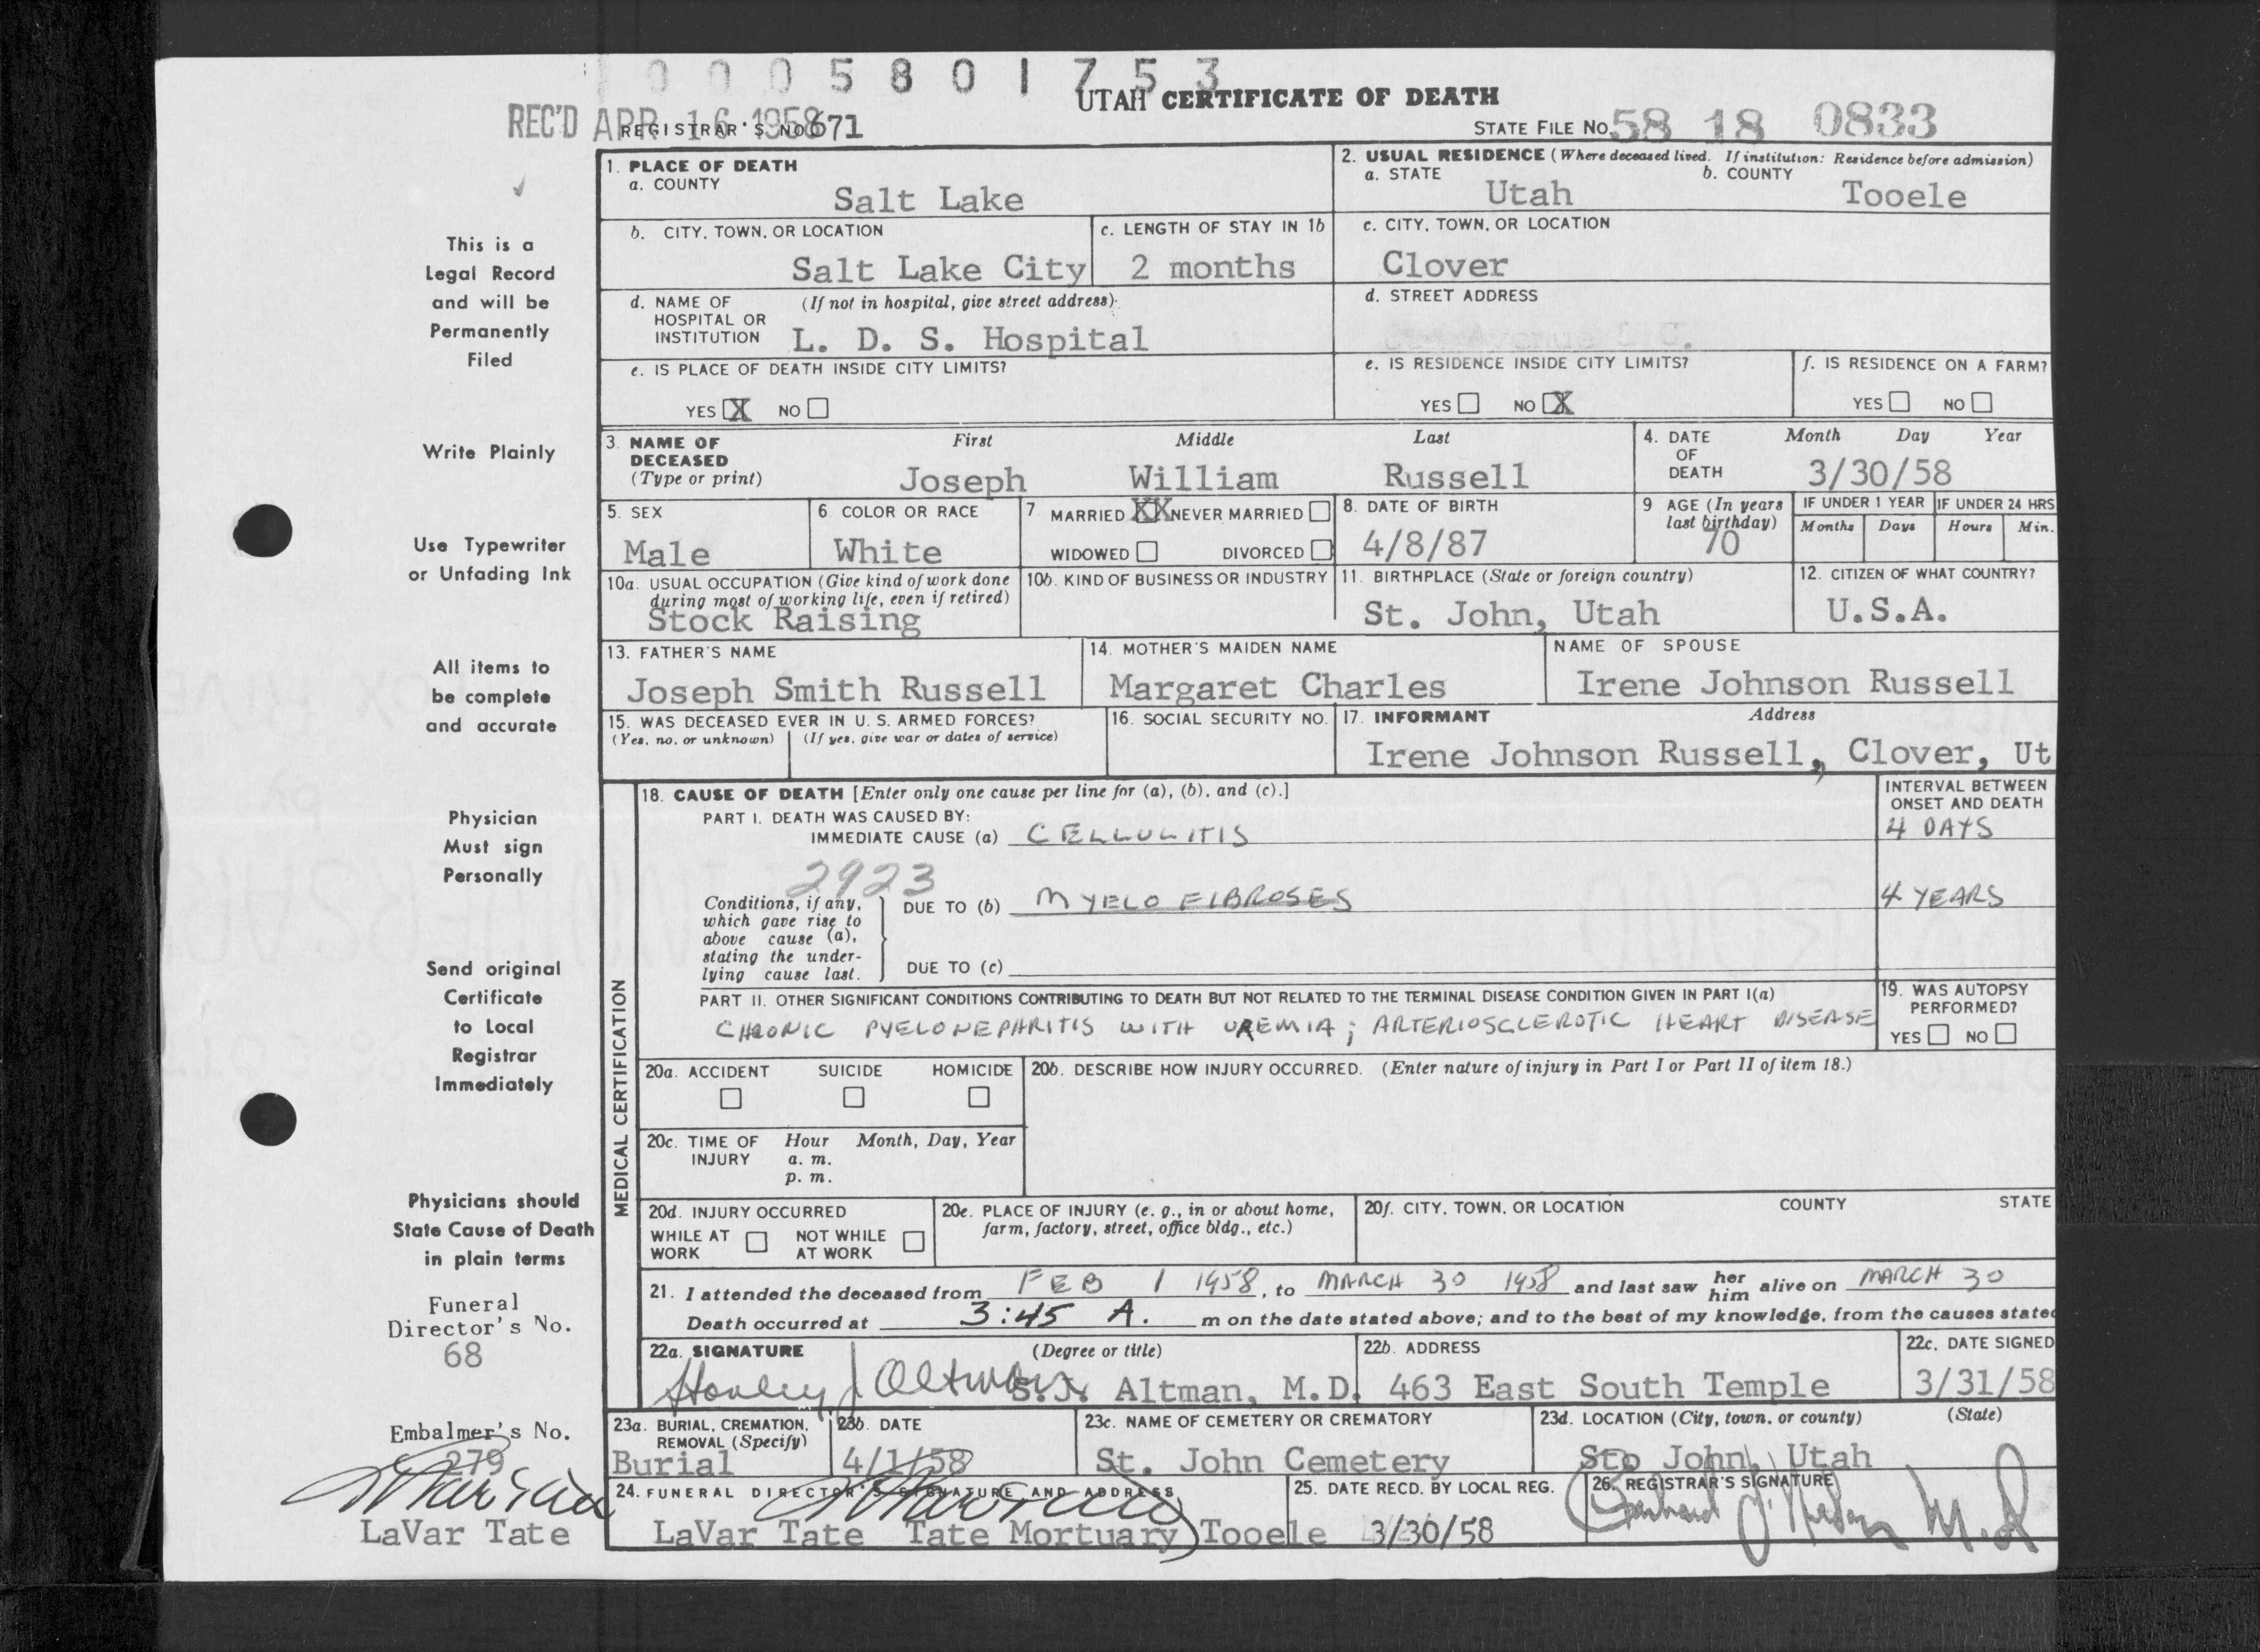 0 0 0 5 8 0 1 7 5 3
UTAH CERTIFICATE OF DEATH
REC'D APR 16 1958
REGISTRAR'S NO 671
STATE FILE NO. 58 18 0833
1. PLACE OF DEATH
a. COUNTY
Salt Lake
2. USUAL RESIDENCE (Where deceased lived. If institution: Residence before admission)
a. STATE
Utah
b. COUNTY
Tooele
b. CITY, TOWN, OR LOCATION
Salt Lake City
c. LENGTH OF STAY IN 1b
2 months
c. CITY, TOWN, OR LOCATION
Clover
d. NAME OF HOSPITAL OR INSTITUTION
(If not in hospital, give street address)
L. D. S. Hospital
d. STREET ADDRESS
e. IS PLACE OF DEATH INSIDE CITY LIMITS?
YES X NO
e. IS RESIDENCE INSIDE CITY LIMITS?
YES NO X
f. IS RESIDENCE ON A FARM?
YES NO
3. NAME OF DECEASED (Type or print)
First Middle Last
Joseph William Russell
4. DATE OF DEATH
Month Day Year
3/30/58
5. SEX
Male
6. COLOR OR RACE
White
7. MARRIED XX NEVER MARRIED
WIDOWED DIVORCED
8. DATE OF BIRTH
4/8/87
9 AGE (In years last birthday)
70
IF UNDER 1 YEAR
Months Days
IF UNDER 24 HRS
Hours Min.
10a. USUAL OCCUPATION (Give kind of work done during most of working life, even if retired)
Stock Raising
10b. KIND OF BUSINESS OR INDUSTRY
11. BIRTHPLACE (State or foreign country)
St. John, Utah
12. CITIZEN OF WHAT COUNTRY?
U.S.A.
13. FATHER'S NAME
Joseph Smith Russell
14. MOTHER'S MAIDEN NAME
Margaret Charles
NAME OF SPOUSE
Irene Johnson Russell
15. WAS DECEASED EVER IN U. S. ARMED FORCES?
(Yes, no, or unknown) (If yes, give war or dates of service)
16. SOCIAL SECURITY NO.
17. INFORMANT Address
Irene Johnson Russell, Clover, Ut
MEDICAL CERTIFICATION
18. CAUSE OF DEATH [Enter only one cause per line for (a), (b), and (c).]
INTERVAL BETWEEN ONSET AND DEATH
PART I. DEATH WAS CAUSED BY:
IMMEDIATE CAUSE (a) CELLULITIS
4 DAYS
2923
Conditions, if any, which gave rise to above cause (a), stating the underlying cause last.
DUE TO (b) MYELO FIBROSES
4 YEARS
DUE TO (c)
PART II. OTHER SIGNIFICANT CONDITIONS CONTRIBUTING TO DEATH BUT NOT RELATED TO THE TERMINAL DISEASE CONDITION GIVEN IN PART I(a)
CHRONIC PYELONEPHRITIS WITH UREMIA; ARTERIOSCLEROTIC HEART DISEASE
19. WAS AUTOPSY PERFORMED?
YES NO
20a. ACCIDENT SUICIDE HOMICIDE
20b. DESCRIBE HOW INJURY OCCURRED. (Enter nature of injury in Part I or Part II of item 18.)
20c. TIME OF INJURY
Hour Month, Day, Year
a. m.
p. m.
20d. INJURY OCCURRED
WHILE AT WORK NOT WHILE AT WORK
20e. PLACE OF INJURY (e. g., in or about home, farm, factory, street, office bldg., etc.)
20f. CITY, TOWN, OR LOCATION COUNTY STATE
21. I attended the deceased from FEB 1 1958, to MARCH 30 1958 and last saw her him alive on MARCH 30
Death occurred at 3:45 A. m on the date stated above; and to the best of my knowledge, from the causes stated
22a. SIGNATURE (Degree or title)
Stanley J Altman
S.J. Altman, M.D.
22b. ADDRESS
463 East South Temple
22c. DATE SIGNED
3/31/58
23a. BURIAL, CREMATION, REMOVAL (Specify)
Burial
23b. DATE
4/1/58
23c. NAME OF CEMETERY OR CREMATORY
St. John Cemetery
23d. LOCATION (City, town, or county) (State)
Sto John, Utah
24. FUNERAL DIRECTOR'S SIGNATURE AND ADDRESS
LaVar Tate Tate Mortuary Tooele
25. DATE RECD. BY LOCAL REG.
3/30/58
26. REGISTRAR'S SIGNATURE
M.D
This is a
Legal Record
and will be
Permanently
Filed
Write Plainly
Use Typewriter
or Unfading Ink
All items to
be complete
and accurate
Physician
Must sign
Personally
Send original
Certificate
to Local
Registrar
Immediately
Physicians should
State Cause of Death
in plain terms
Funeral
Director's No.
68
Embalmer's No.
279
LaVar Tate